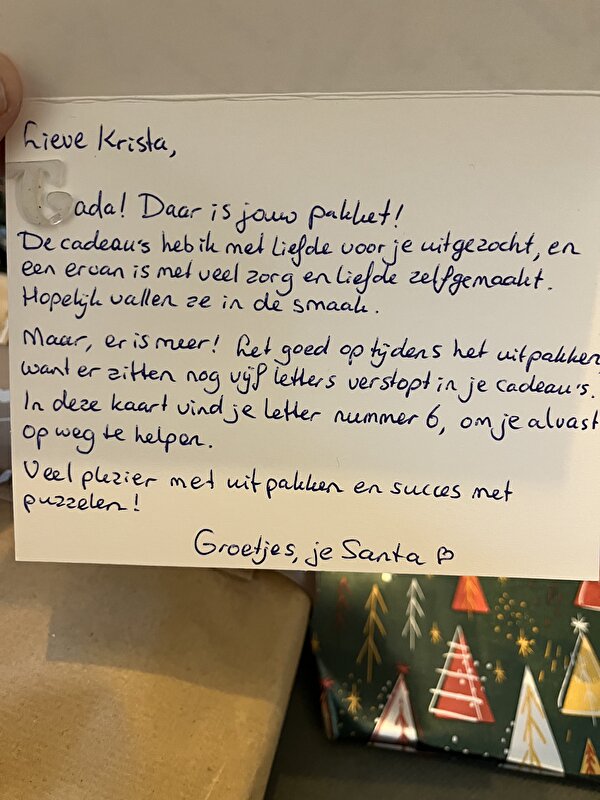 Lieve Krista,
Tada! Daar is jouw pakket!
De cadeau's heb ik met liefde voor je uitgezocht, en
een ervan is met veel zorg en liefde zelfgemaakt.
Hopelijk vallen ze in de smaak.
Maar, er is meer! Let goed op tijdens het uitpakken
want er zitten nog vijf letters verstopt in je cadeau's.
In deze kaart vind je letter nummer 6, om je alvast
op weg te helpen.
Veel plezier met uitpakken en succes met
puzzelen!
Groetjes, je Santa